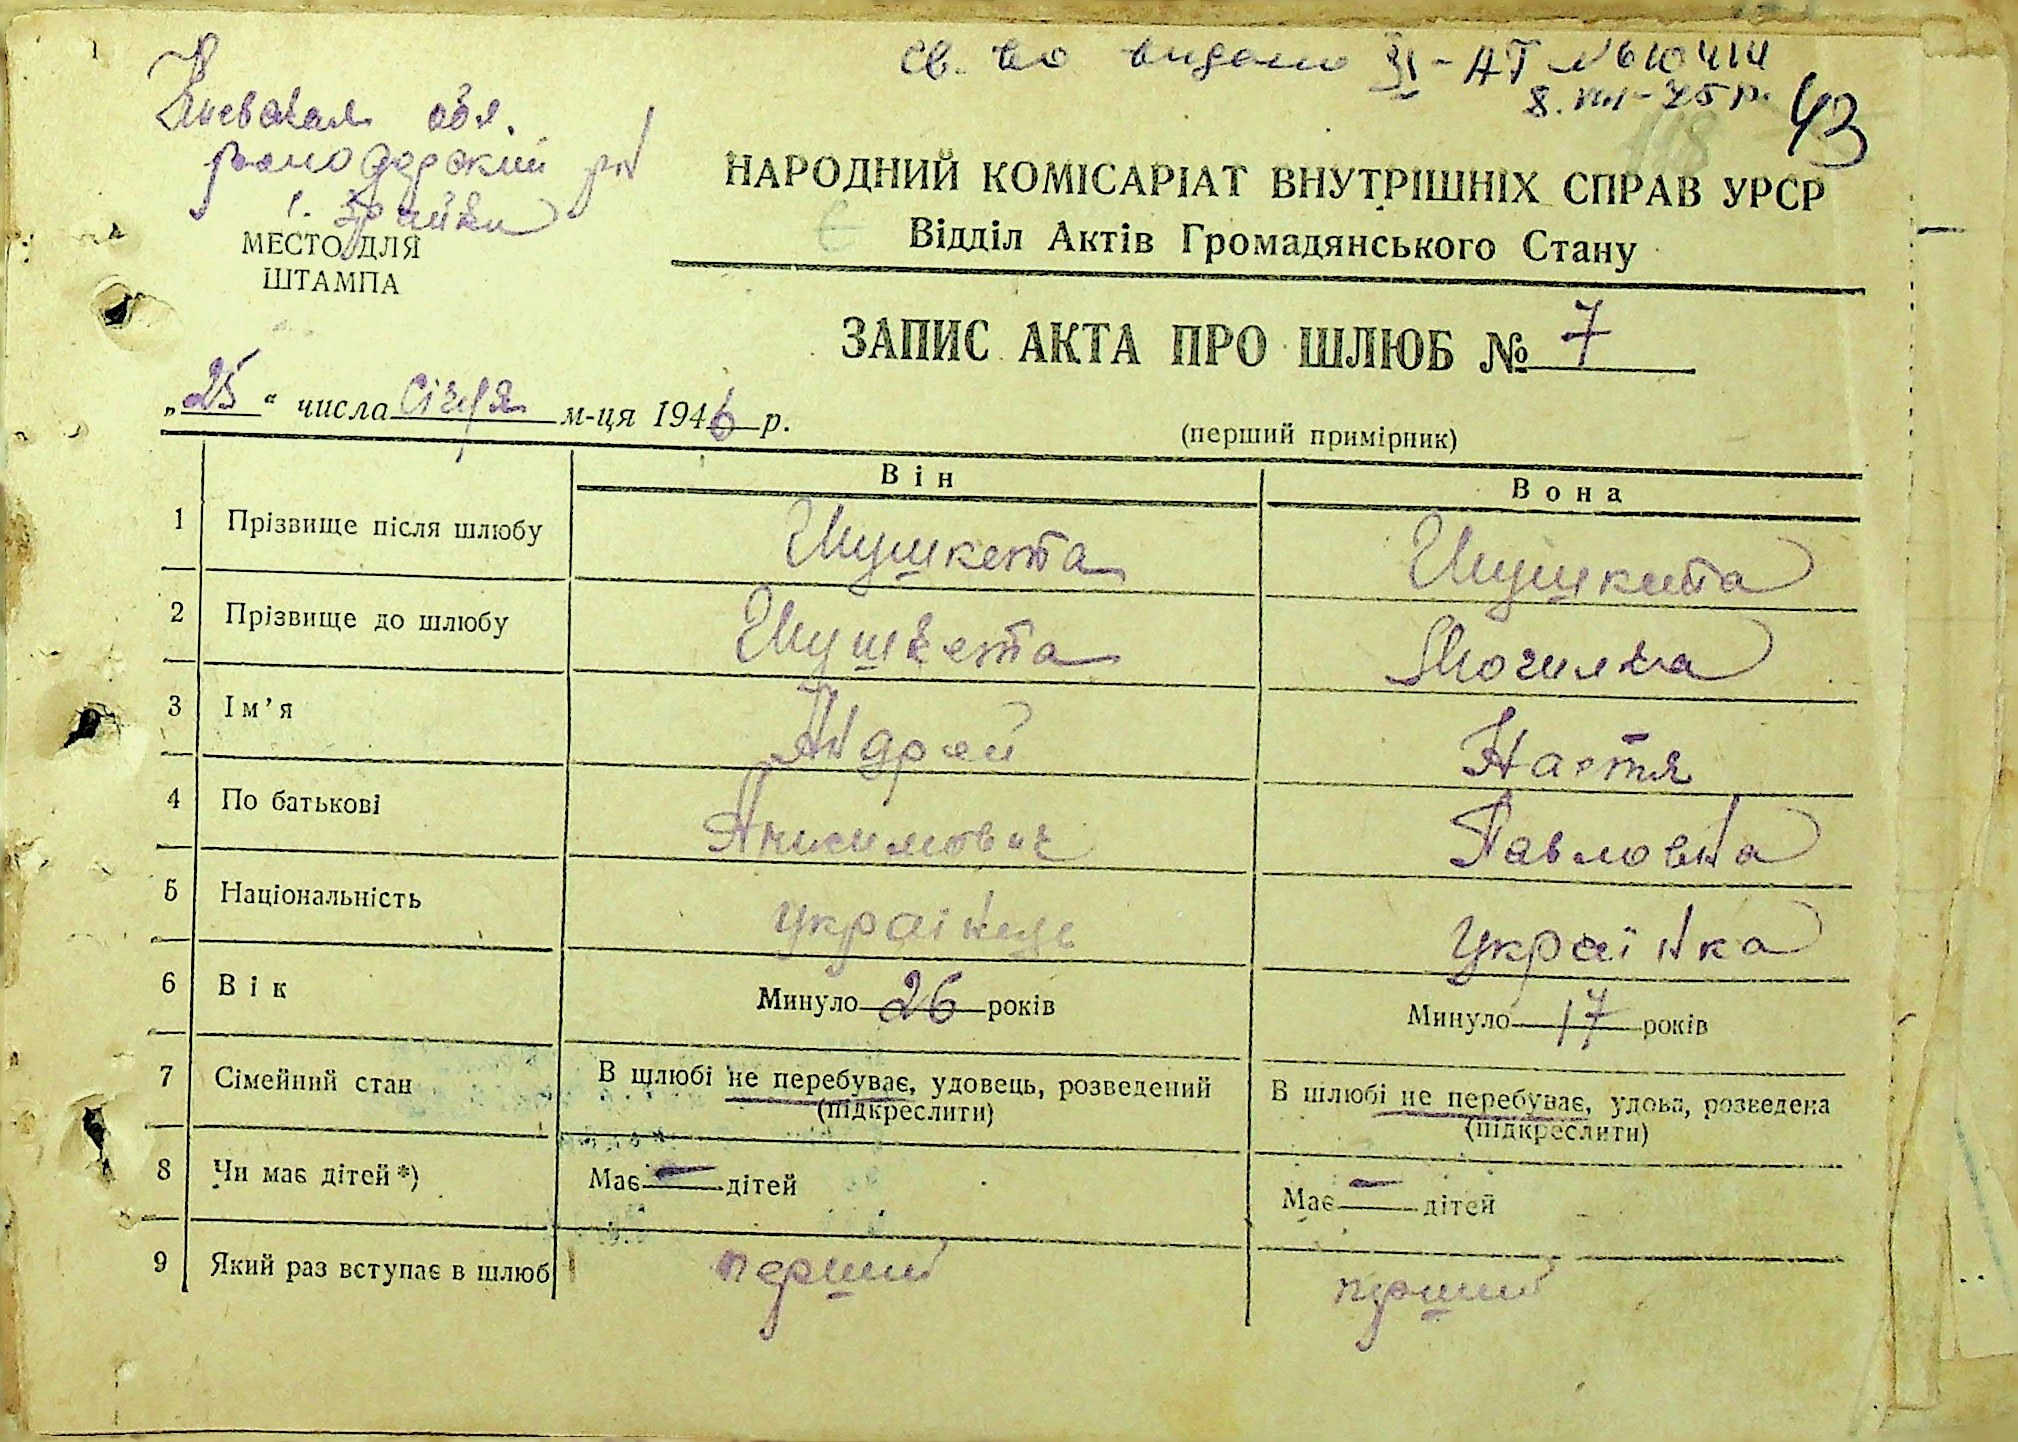 Св. во видано III-АГ № 610414
8. VIII-75 р.
43
118
Киевская обл.
володарский р/н
с. Зрайки
МЕСТО ДЛЯ
ШТАМПА
НАРОДНИЙ КОМІСАРІАТ ВНУТРІШНІХ СПРАВ УРСР
Відділ Актів Громадянського Стану
ЗАПИС АКТА ПРО ШЛЮБ № 7
„25“ числа січня м-ця 1946 р.
(перший примірник)
Він Вона
1 Прізвище після шлюбу Шушкета Шушкета
2 Прізвище до шлюбу Шушкета Могилка
3 Ім’я Андрей Настя
4 По батькові Анисимович Павловна
5 Національність українець українка
6 Вік Минуло 26 років Минуло 17 років
7 Сімейний стан В шлюбі не перебуває, удовець, розведений (підкреслити) В шлюбі не перебуває, удова, розведена (підкреслити)
8 Чи має дітей*) Має — дітей Має — дітей
9 Який раз вступає в шлюб перший перший